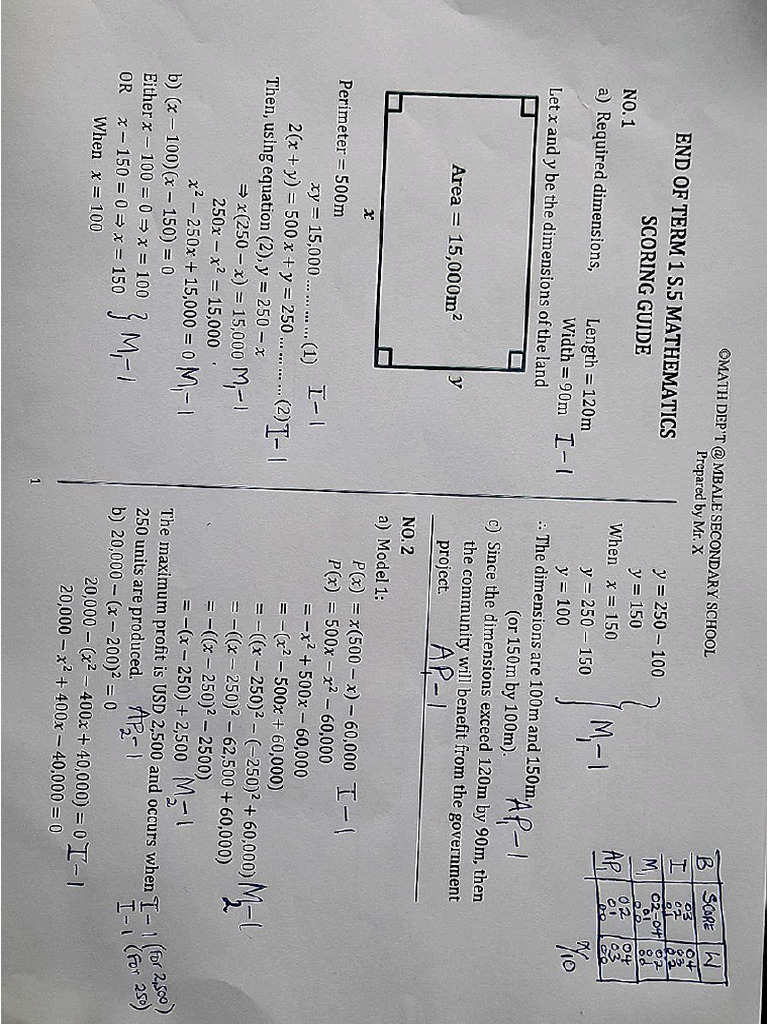 ©MATH DEP'T @ MBALE SECONDARY SCHOOL
Prepared by Mr. X
END OF TERM 1 S.5 MATHEMATICS
SCORING GUIDE
NO.1
a) Required dimensions, Length = 120m
Width = 90m I-1
Let x and y be the dimensions of the land
Area = 15,000m²
y
x
Perimeter = 500m
xy = 15,000 ............ (1) I-1
2(x + y) = 500 x + y = 250 ............ (2) I-1
Then, using equation (2), y = 250 − x
⇒ x(250 − x) = 15,000 M₁-1
250x − x² = 15,000
x² − 250x + 15,000 = 0 M₁-1
b) (x − 100)(x − 150) = 0
Either x − 100 = 0 ⇒ x = 100
OR x − 150 = 0 ⇒ x = 150 } M₁-1
When x = 100
y = 250 − 100
y = 150
When x = 150
y = 250 − 150
y = 100 } M₁-1
∴ The dimensions are 100m and 150m
(or 150m by 100m). AP₁-1
c) Since the dimensions exceed 120m by 90m, then
the community will benefit from the government
project. AP₁-1
NO.2
a) Model 1:
P(x) = x(500 − x) − 60,000 I-1
P(x) = 500x − x² − 60,000
= −x² + 500x − 60,000
= −(x² − 500x + 60,000)
= −((x − 250)² − (−250)² + 60,000) M₂-1
= −((x − 250)² − 62,500 + 60,000)
= −((x − 250)² − 2500)
= −(x − 250) + 2,500 M₂-1
The maximum profit is USD 2,500 and occurs when I-1 (For 2,500)
250 units are produced. AP₂-1 I-1 (For 250)
b) 20,000 − (x − 200)² = 0
20,000 − (x² − 400x + 40,000) = 0 I-1
20,000 − x² + 400x − 40,000 = 0
B SCORE W
I 03 04
02 03
01 02
M₁ 02-04 02
01
00
AP₁ 02 04
01 03
00 00
/10
1